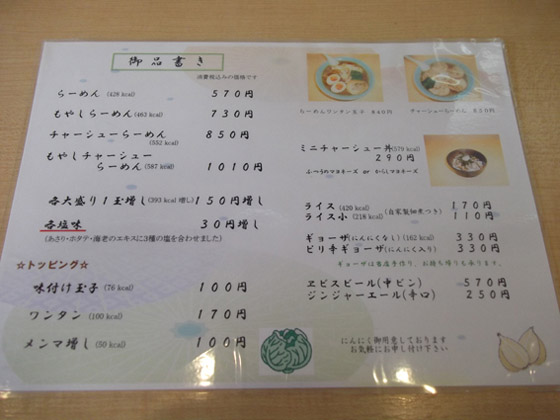 御品書き
消費税込みの価格です
らーめん (428 kcal) 570円
もやしらーめん (463 kcal) 730円
チャーシューらーめん 850円
(552 kcal)
もやしチャーシュー
らーめん (587 kcal) 1010円
各大盛り1玉増し (393 kcal 増し) 150円増し
各塩味 30円増し
(あさり・ホタテ・海老のエキスに3種の塩を合わせました)
☆トッピング☆
味付け玉子 (76 kcal) 100円
ワンタン (100 kcal) 170円
メンマ増し (50 kcal) 100円
らーめんワンタン玉子 840円
チャーシューらーめん 850円
ミニチャーシュー丼 (579 kcal)
290円
ふつうのマヨネーズ or からしマヨネーズ
ライス (420 kcal) 170円
ライス小 (218 kcal) (自家製佃煮つき) 110円
ギョーザ (にんにくなし) (162 kcal) 330円
ピリ辛ギョーザ (にんにく入り) 330円
ギョーザは当店手作り、お持ち帰りも承ります。
ヱビスビール (中ビン) 570円
ジンジャーエール (辛口) 250円
にんにく御用意しております
お気軽にお申し付け下さい